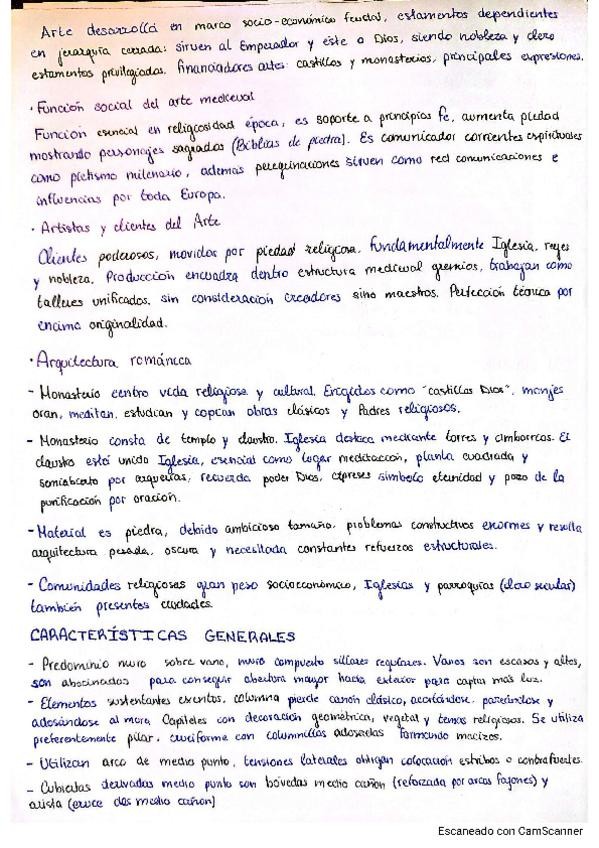 Arte desarrolla en marco socio-económico feudal, estamentos dependientes
en jerarquía cerrada: sirven al Emperador y este a Dios, siendo nobleza y clero
estamentos privilegiados. Financiadores artes: castillos y monasterios, principales expresiones.
· Función social del arte medieval
Función esencial en religiosidad época, es soporte a principios fe, aumenta piedad
mostrando personajes sagrados (Biblias de piedra). Es comunicador corrientes espirituales
como pietismo milenario, además peregrinaciones sirven como red comunicaciones e
influencias por toda Europa.
· Artistas y clientes del Arte
Clientes poderosos, movidos por piedad religiosa, fundamentalmente Iglesia, reyes
y nobleza. Producción encuadra dentro estructura medieval gremios, trabajan como
talleres unificados, sin consideración creadores sino maestros. Perfección técnica por
encima originalidad.
· Arquitectura románica
- Monasterio centro vida religiosa y cultural. Erigidos como "castillos Dios", monjes
oran, meditan, estudian y copian obras clásicos y Padres religiosos.
- Monasterio consta de templo y claustro. Iglesia destaca mediante torres y cimborrios. El
claustro está unido Iglesia, esencial como lugar meditación, planta cuadrada y
semiabierto por arquerías, recuerda poder Dios, cipreses símbolo eternidad y pozo de la
purificación por oración.
- Material es piedra, debido ambicioso tamaño, problemas constructivos enormes y resulta
arquitectura pesada, oscura y necesitada constantes refuerzos estructurales.
- Comunidades religiosas gran peso socioeconómico, Iglesias y parroquias (clero secular)
también presentes ciudades.
CARACTERÍSTICAS GENERALES
- Predominio muro sobre vano, muro compuesto sillares regulares. Vanos son escasos y altos,
son abocinados para conseguir abertura mayor hacia exterior para captar más luz.
- Elementos sustentantes exentos, columna pierde canon clásico, acortándose, pareándose y
adosándose al muro. Capiteles con decoración geométrica, vegetal y temas religiosos. Se utiliza
preferentemente pilar, cruciforme con columnillas adosadas formando macizos.
- Utilizan arco de medio punto, tensiones laterales obligan colocación estribos o contrafuertes.
- Cubiertas derivadas medio punto son bóvedas medio cañón (reforzada por arcos fajones) y
arista (cruce dos medio cañón)
Escaneado con CamScanner